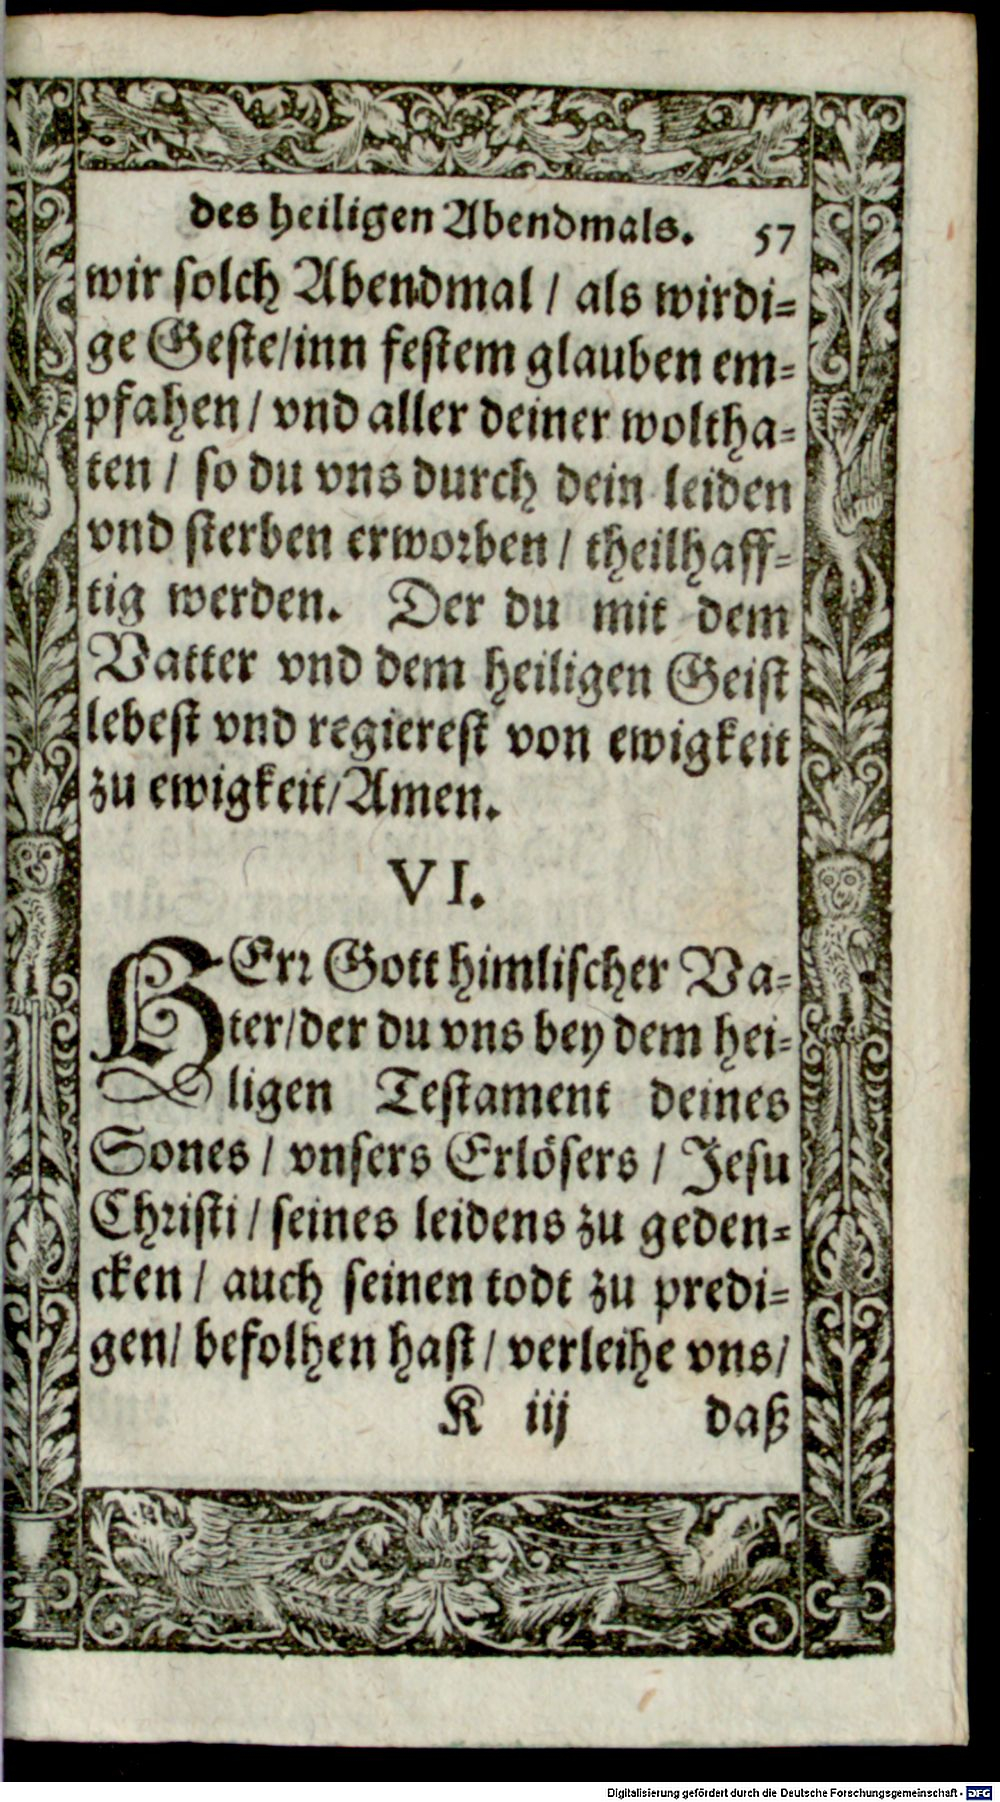 des heiligen Abendmals. 57
wir solch Abendmal / als wirdi=
ge Geste/inn festem glauben em=
pfahen / vnd aller deiner woltha=
ten / so du vns durch dein leiden
vnd sterben erworben / theilhaff=
tig werden. Der du mit dem
Vatter vnd dem heiligen Geist
lebest vnd regierest von ewigkeit
zu ewigkeit/Amen.
VI.
HErr Gott himlischer Va=
ter/der du vns bey dem hei=
ligen Testament deines
Sones / vnsers Erlösers / Jesu
Christi / seines leidens zu geden=
cken / auch seinen todt zu predi=
gen/ befolhen hast / verleihe vns/
K iij daß
Digitalisierung gefördert durch die Deutsche Forschungsgemeinschaft - DFG